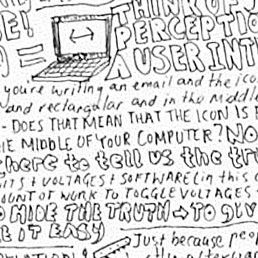 THINK OF
PERCEPTIO
A USER INT
you're writing an email and the ico
and rectangular and in the middle
- DOES THAT MEAN THAT THE ICON IS
MIDDLE OF YOUR COMPUTER? NO
there to tell us the tru
+ VOLTAGES + SOFTWARE (in this c
OUNT OF WORK TO TOGGLE VOLTAGES
TO HIDE THE TRUTH → TO GIV
IT EASY
Just because peop